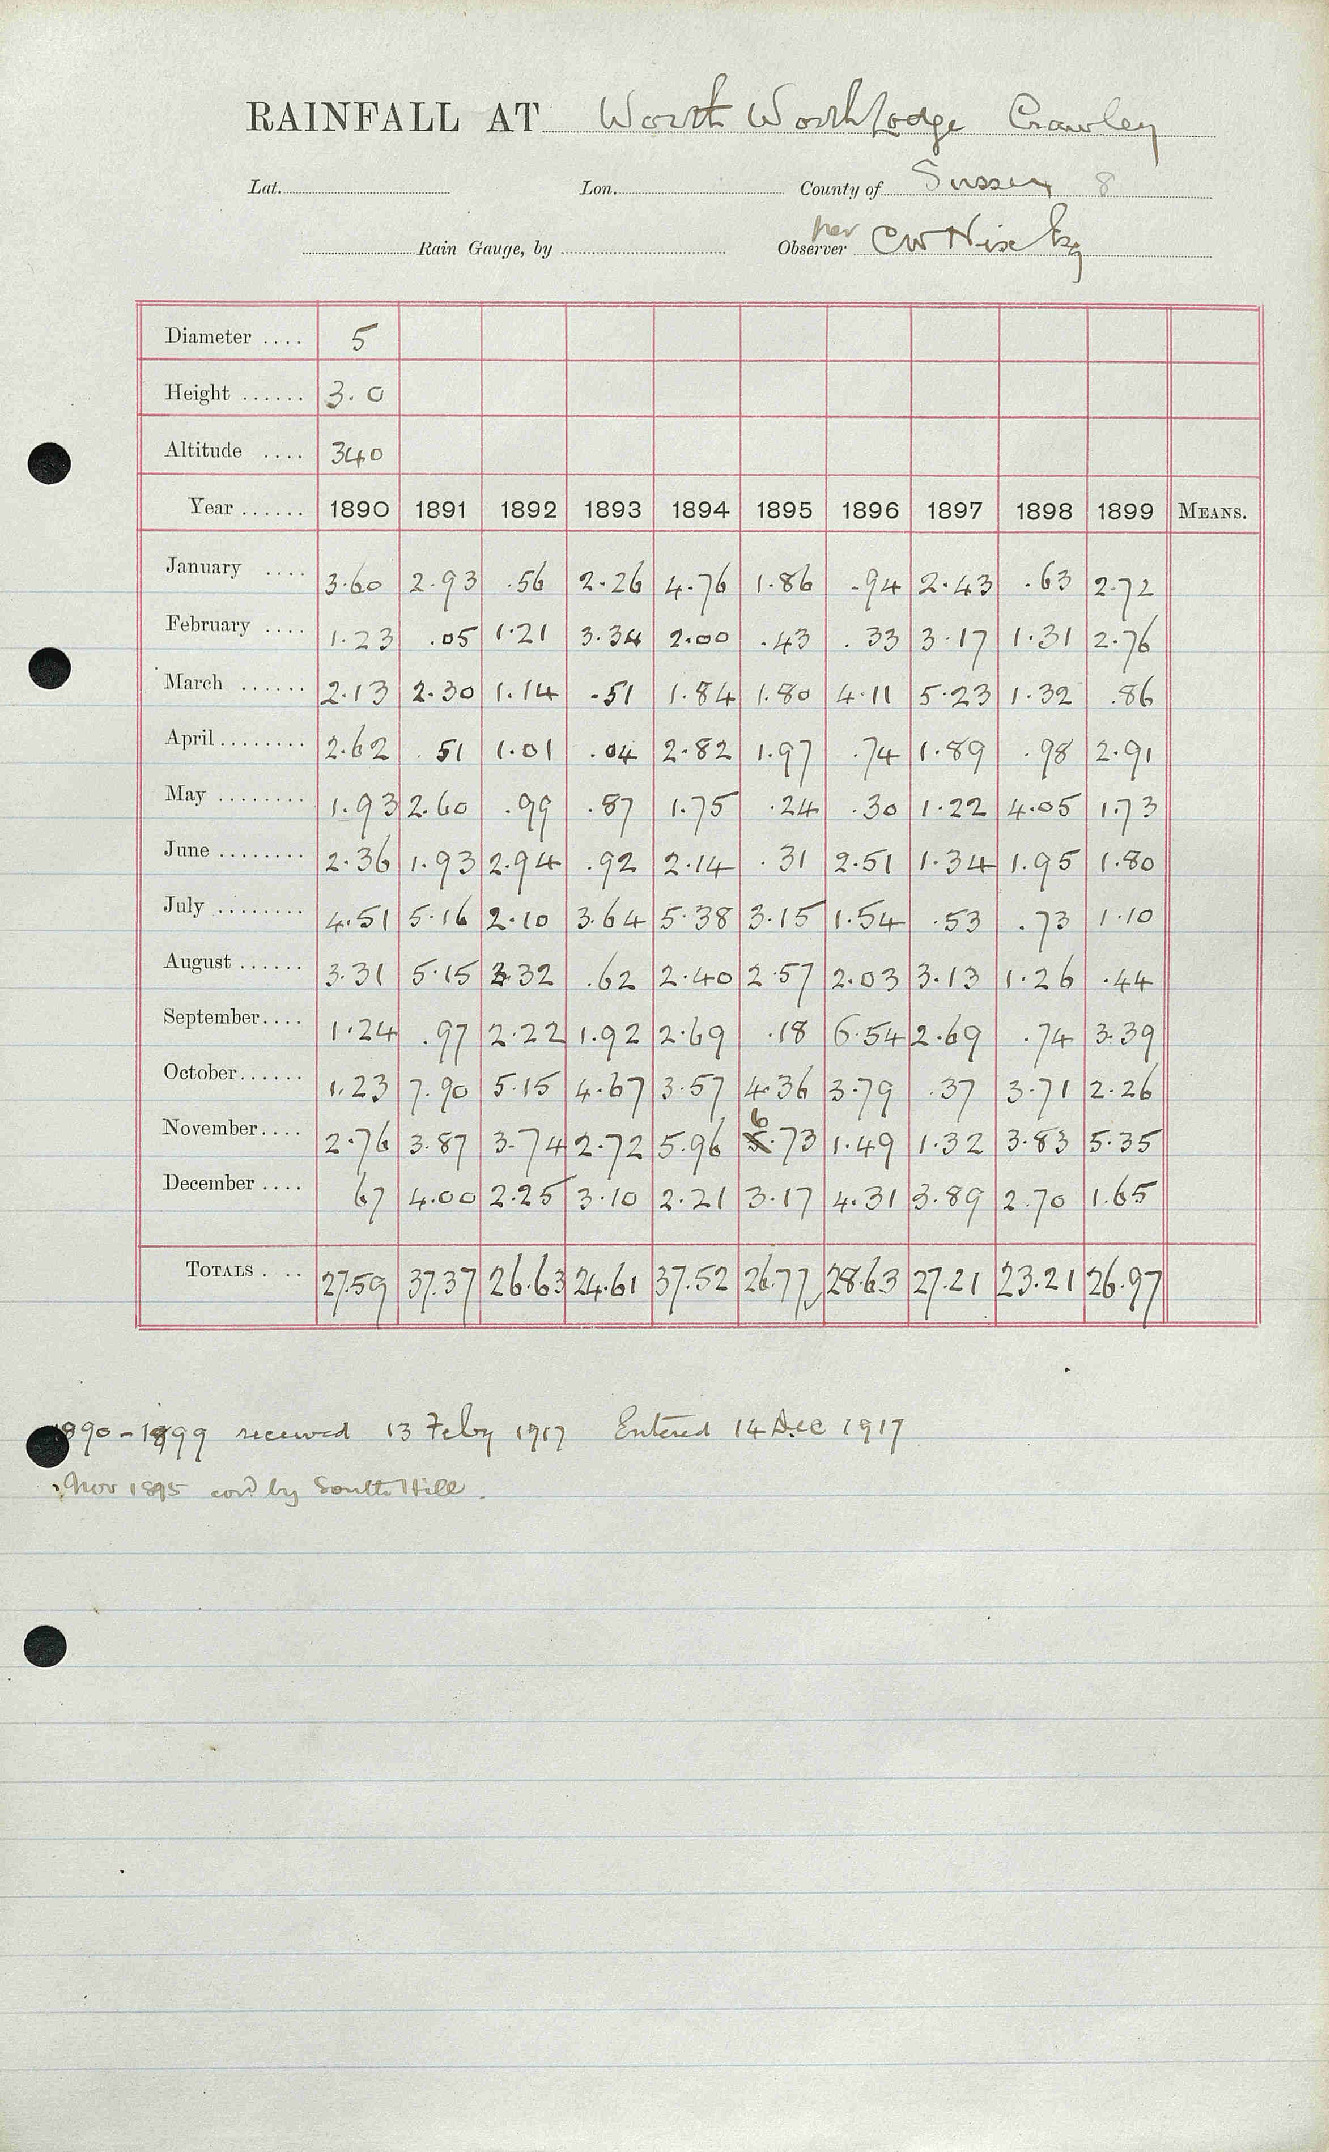 RAINFALL AT Worth Worth Lodge Crawley
Lat. Lon. County of Sussex 8
Rain Gauge, by Observer per C W Nix Esq
Diameter .... 5
Height ...... 3.0
Altitude .... 340
Year ...... 1890 1891 1892 1893 1894 1895 1896 1897 1898 1899 MEANS.
January .... 3.60 2.93 .56 2.26 4.76 1.86 .94 2.43 .63 2.72
February .... 1.23 .05 1.21 3.34 2.00 .43 .33 3.17 1.31 2.76
March ...... 2.13 2.30 1.14 .51 1.84 1.80 4.11 5.23 1.32 .86
April ........ 2.62 .51 1.01 .04 2.82 1.97 .74 1.89 .98 2.91
May ........ 1.93 2.60 .99 .87 1.75 .24 .30 1.22 4.05 1.73
June ........ 2.36 1.93 2.94 .92 2.14 .31 2.51 1.34 1.95 1.80
July ........ 4.51 5.16 2.10 3.64 5.38 3.15 1.54 .53 .73 1.10
August ...... 3.31 5.15 3.32 .62 2.40 2.57 2.03 3.13 1.26 .44
September.... 1.24 .97 2.22 1.92 2.69 .18 6.54 2.69 .74 3.39
October...... 1.23 7.90 5.15 4.67 3.57 4.36 3.79 .37 3.71 2.26
November.... 2.76 3.87 3.74 2.72 5.96 6.73 1.49 1.32 3.83 5.35
December .... 67 4.00 2.25 3.10 2.21 3.17 4.31 3.89 2.70 1.65
TOTALS . .. 27.59 37.37 26.63 24.61 37.52 26.77 28.63 27.21 23.21 26.97
1890-1899 received 13 Feby 1917 Entered 14 Dec 1917
Nov 1895 cord by South Hill.